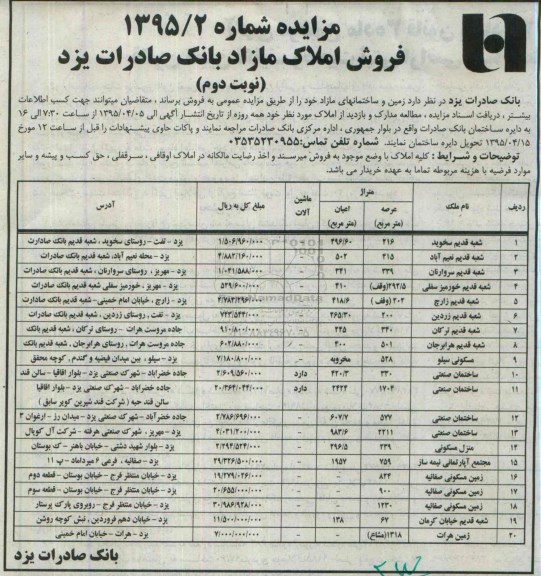 مزایده شماره ۱۳۹۵/۲
فروش املاک مازاد بانک صادرات یزد
(نوبت دوم)
بانک صادرات یزد در نظر دارد زمین و ساختمانهای مازاد خود را از طریق مزایده عمومی به فروش برساند ، متقاضیان میتوانند جهت کسب اطلاعات
بیشتر ، دریافت اسناد مزایده ، مطالعه مدارک و بازدید از املاک مورد نظر خود همه روزه از تاریخ انتشار آگهی الی ۱۳۹۵/۰۴/۰۵ از ساعت ۷:۳۰ الی ۱۶
به دایره ساختمان بانک صادرات واقع در بلوار جمهوری ، اداره مرکزی بانک صادرات مراجعه نمایند و پاکات حاوی پیشنهادات را قبل از ساعت ۱۲ مورخ
۱۳۹۵/۰۴/۱۵ تحویل دایره ساختمان نمایند. شماره تلفن تماس:۰۳۵۳۵۲۳۰۹۵۵
توضیحات و شرایط : کلیه املاک با وضع موجود به فروش میرسند و اخذ رضایت مالکانه در املاک اوقافی ، سرقفلی ، حق کسب و پیشه و سایر
موارد فرضیه با هزینه مربوطه تماما به عهده خریدار می باشد.
ردیف نام ملک متراژ عرصه (متر مربع) اعیان (متر مربع) ماشین آلات مبلغ کل به ریال آدرس
۱ شعبه قدیم سخوید ۲۱۶ ۲۹۶/۶۰ - ۱/۵۰۶/۹۶۰/۰۰۰ یزد - تفت - روستای سخوید ، شعبه قدیم بانک صادارت
۲ شعبه قدیم نعیم آباد ۲۱۵ ۵۰۲ - یزد - محله نعیم آباد، شعبه قدیم بانک صادرات
۳ شعبه قدیم سروارنان ۳۳۹ ۳۴۱ - یزد - مهریز ، روستای سروارنان ، شعبه قدیم بانک صادرات
۴ شعبه قدیم خورمیز سفلی ۲۹۲/۵(وقف) ۴۱۰ - ۵۲۹/۶۰۰/۰۰۰ یزد - مهریز ، خورمیز سفلی شعبه قدیم بانک صادرات
۵ شعبه قدیم زارچ ۲۰۲ (وقف) ۴۱۸/۶ - یزد - زارچ ، خیابان امام خمینی - شعبه قدیم بانک صادارت
۶ شعبه قدیم زردین ۲۰۰ ۲۶۵/۳۰ - ۷۴۳/۵۴۴/۰۰۰ یزد - تفت ، روستای زردین ، شعبه قدیم بانک صادرات
۷ شعبه قدیم ترکان ۳۴۰ ۲۲۵ - ۹۱۰/۸۰۰/۰۰۰ جاده مروست هرات - روستای ترکان ، شعبه قدیم بانک
۸ شعبه قدیم هرابرجان ۵۰۱ ۳۰۰ - ۶۰۲/۸۸۰/۰۰۰ جاده مروست هرات ، روستای هرابرجان ، شعبه قدیم بانک
۹ مسکونی سیلو ۵۲۸ مخروبه - ۷/۱۸۰/۸۰۰/۰۰۰ یزد - سیلو ، بین میدان فیضیه و گندم ، کوچه محقق
۱۰ ساختمان صنعتی ۳۳۰ ۴۲۰/۳ دارد ۲/۶۰۹/۵۶۰/۰۰۰ جاده خضراباد - شهرک صنعتی یزد - بلوار اقاقیا - سالن قند
۱۱ ساختمان صنعتی ۱۷۰۴ ۲۴۲۴ دارد ۲۰/۳۶۴/۰۴۴/۰۰۰ جاده خضراباد - شهرک صنعتی یزد - بلوار اقاقیا
سالن قند حبه ( شرکت قند شیرین کویر سابق )
۱۲ ساختمان صنعتی ۵۷۷ ۶۰۷/۷ - ۲/۷۸۶/۶۹۶/۰۰۰ جاده خضر آباد - شهرک صنعتی یزد - میدان رز - ارغوان ۳
۱۳ ساختمان صنعتی ۲۲۱۱ ۹۸۳/۶ - ۴/۰۳۱/۲۰۰/۰۰۰ یزد - مهریز ، شهرک صنعتی هرفته - شرکت آل کوپال
۱۴ منزل مسکونی ۲۳۹ ۲۹۶/۵ - ۲/۲۹۲/۵۲۴/۰۰۰ یزد - بلوار شهید دشتی - خیابان باهنر - ک بوستان
۱۵ مجتمع آپارتمانی نیمه ساز ۷۵۹ ۱۹۵۷ - ۲۹/۳۲۶/۵۰۰/۰۰۰ یزد - صفائیه ، فرعی ۶ میرداماد - پ ۱۱
۱۶ زمین مسکونی صفائیه ۸۳۴ - - ۱۹/۲۷۹/۰۳۶/۰۰۰ یزد - خیابان منتظر فرج - خیابان بوستان - قطعه دوم
۱۷ زمین مسکونی صفائیه ۹۰۰ - - ۲۰/۶۵۵/۰۰۰/۰۰۰ یزد - خیابان منتظر فرج - خیابان بوستان - قطعه سوم
۱۸ زمین مسکونی صفائیه ۱۲۳۰ - - ۳۰/۹۸۶/۹۲۸/۰۰۰ یزد - خیابان منتظر فرج - روبروی پارک پرستار
۱۹ شعبه قدیم خیابان کرمان ۶۷ ۱۳۸ - ۱۱/۵۰۰/۰۰۰/۰۰۰ یزد - خیابان دهم فروردین ، نبش کوچه روشن
۲۰ زمین هرات ۱۳۱۸(مشاع) - - ۷/۰۰۰/۰۰۰/۰۰۰ یزد - هرات - خیابان امام خمینی
بانک صادرات یزد